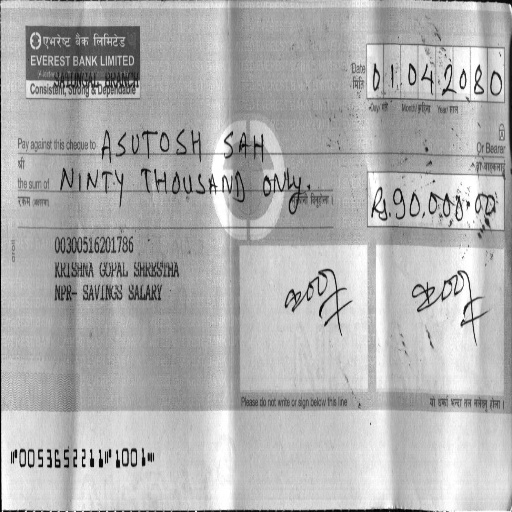 एभरेष्ट बैंक लिमिटेड
EVEREST BANK LIMITED
SATUNGAL BRANCH
Consistent, Strong & Dependable
Date 01042080
मिति
Day/ गते Month/महिना Year/ साल
Pay against this cheque to ASUTOSH SAH
Or Bearer
श्री
the sum of NINTY THOUSAND ONLY.
रकम
Rs.90,000.00
00300516201786
KRISHNA GOPAL SHRESTHA
NPR- SAVINGS SALARY
Please do not write or sign below this line
⑈0053652211⑈1001⑈